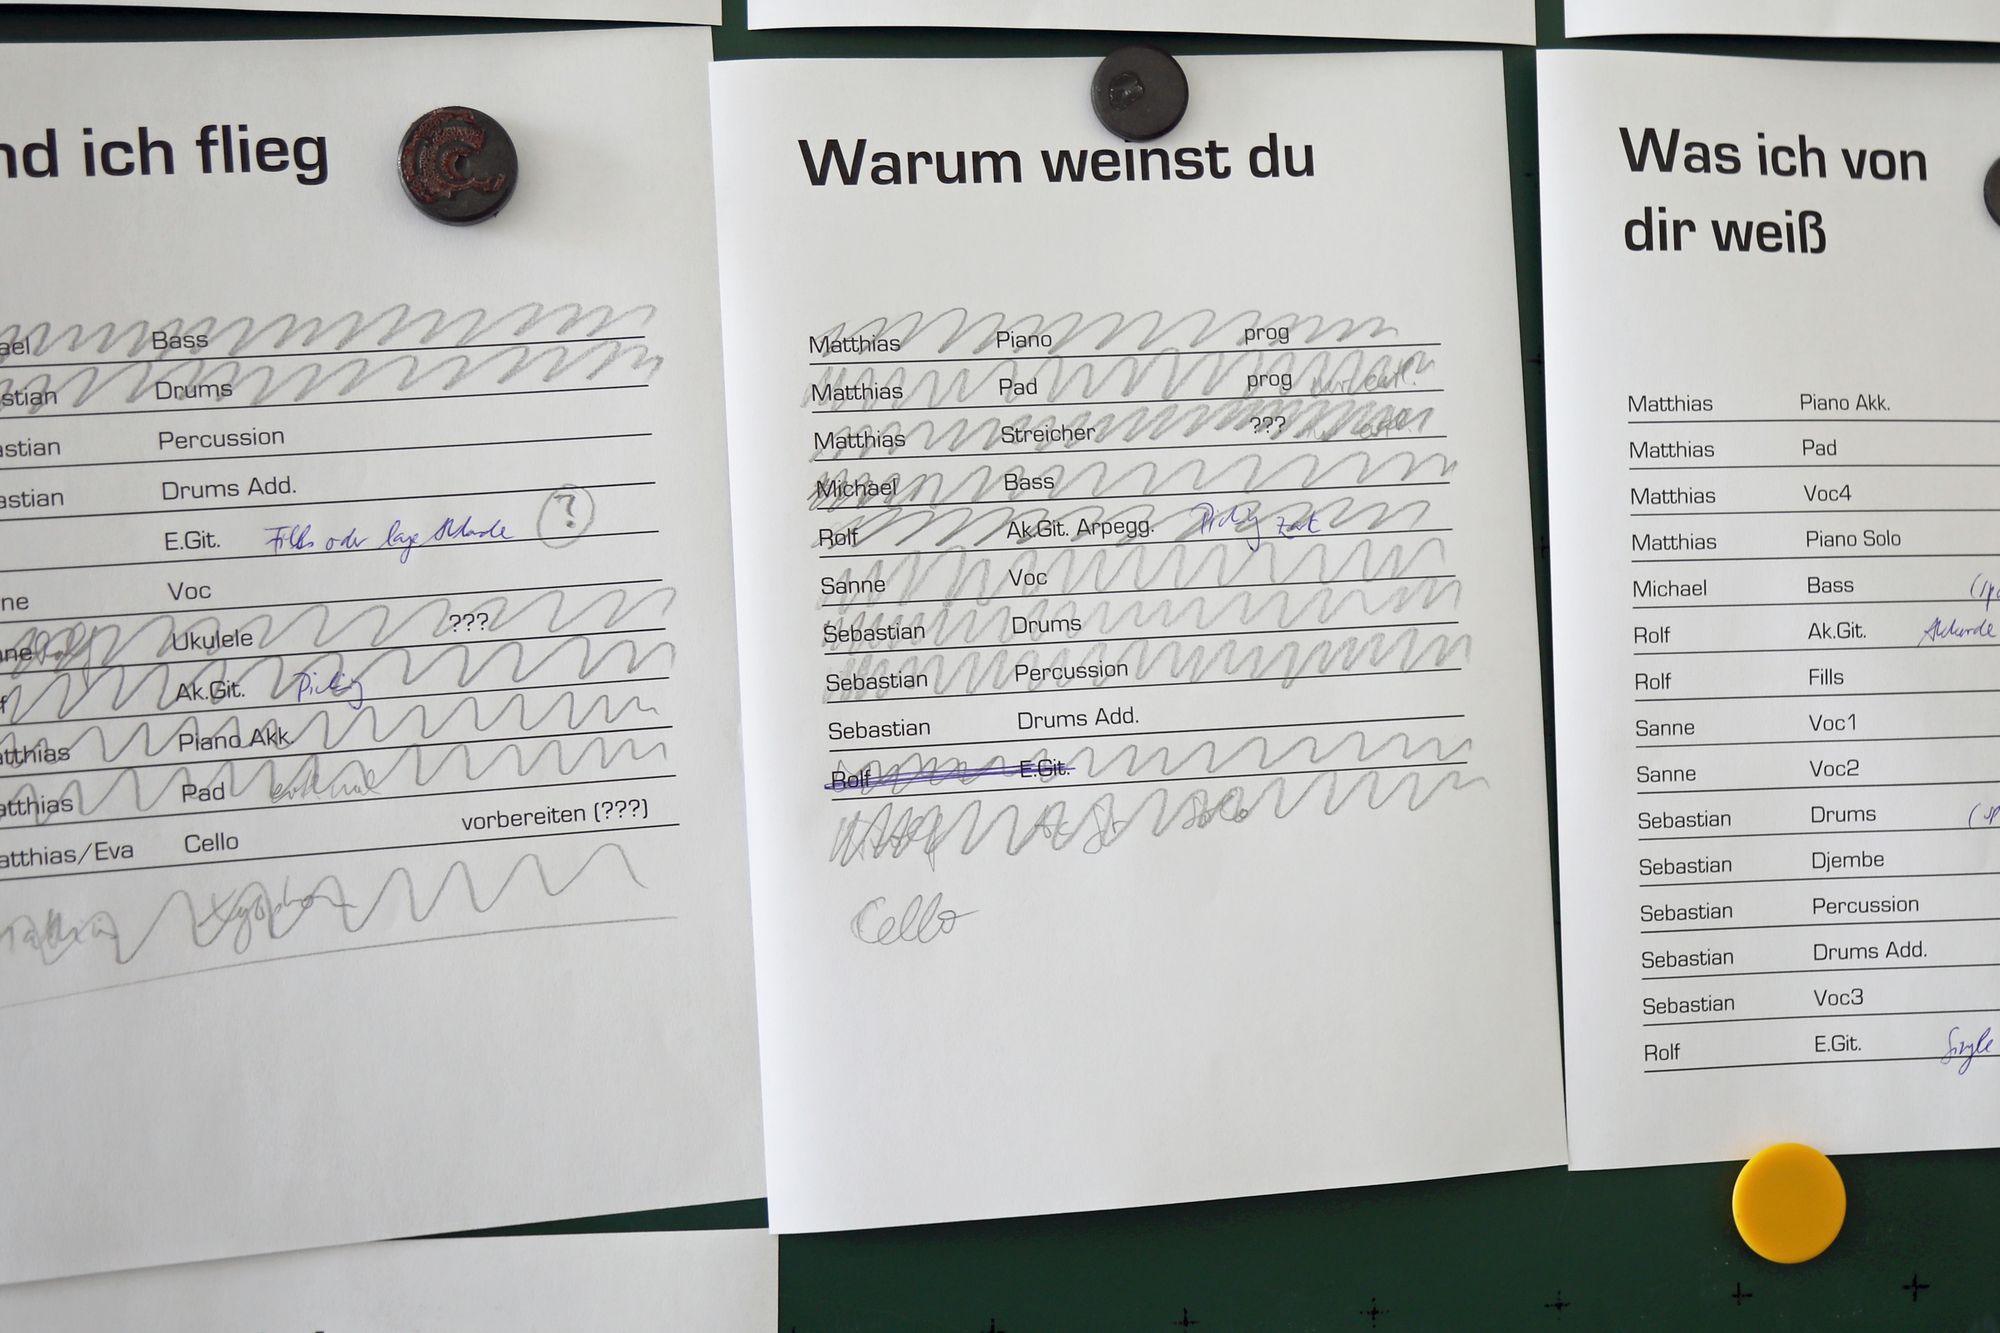 nd ich flieg
ael Bass
stian Drums
astian Percussion
astian Drums Add.
E.Git. Fills oder lange Akkorde ?
ne Voc
nne Ukulele ???
f Ak.Git. Picking
atthias Piano Akk.
atthias Pad
atthias/Eva Cello vorbereiten (???)
Matthias Xylophon
Warum weinst du
Matthias Piano prog
Matthias Pad prog
Matthias Streicher ???
Michael Bass
Rolf Ak.Git. Arpegg. Picking zart
Sanne Voc
Sebastian Drums
Sebastian Percussion
Sebastian Drums Add.
Rolf E.Git.
Cello
Was ich von
dir weiß
Matthias Piano Akk.
Matthias Pad
Matthias Voc4
Matthias Piano Solo
Michael Bass
Rolf Ak.Git. Akkorde
Rolf Fills
Sanne Voc1
Sanne Voc2
Sebastian Drums
Sebastian Djembe
Sebastian Percussion
Sebastian Drums Add.
Sebastian Voc3
Rolf E.Git. Single